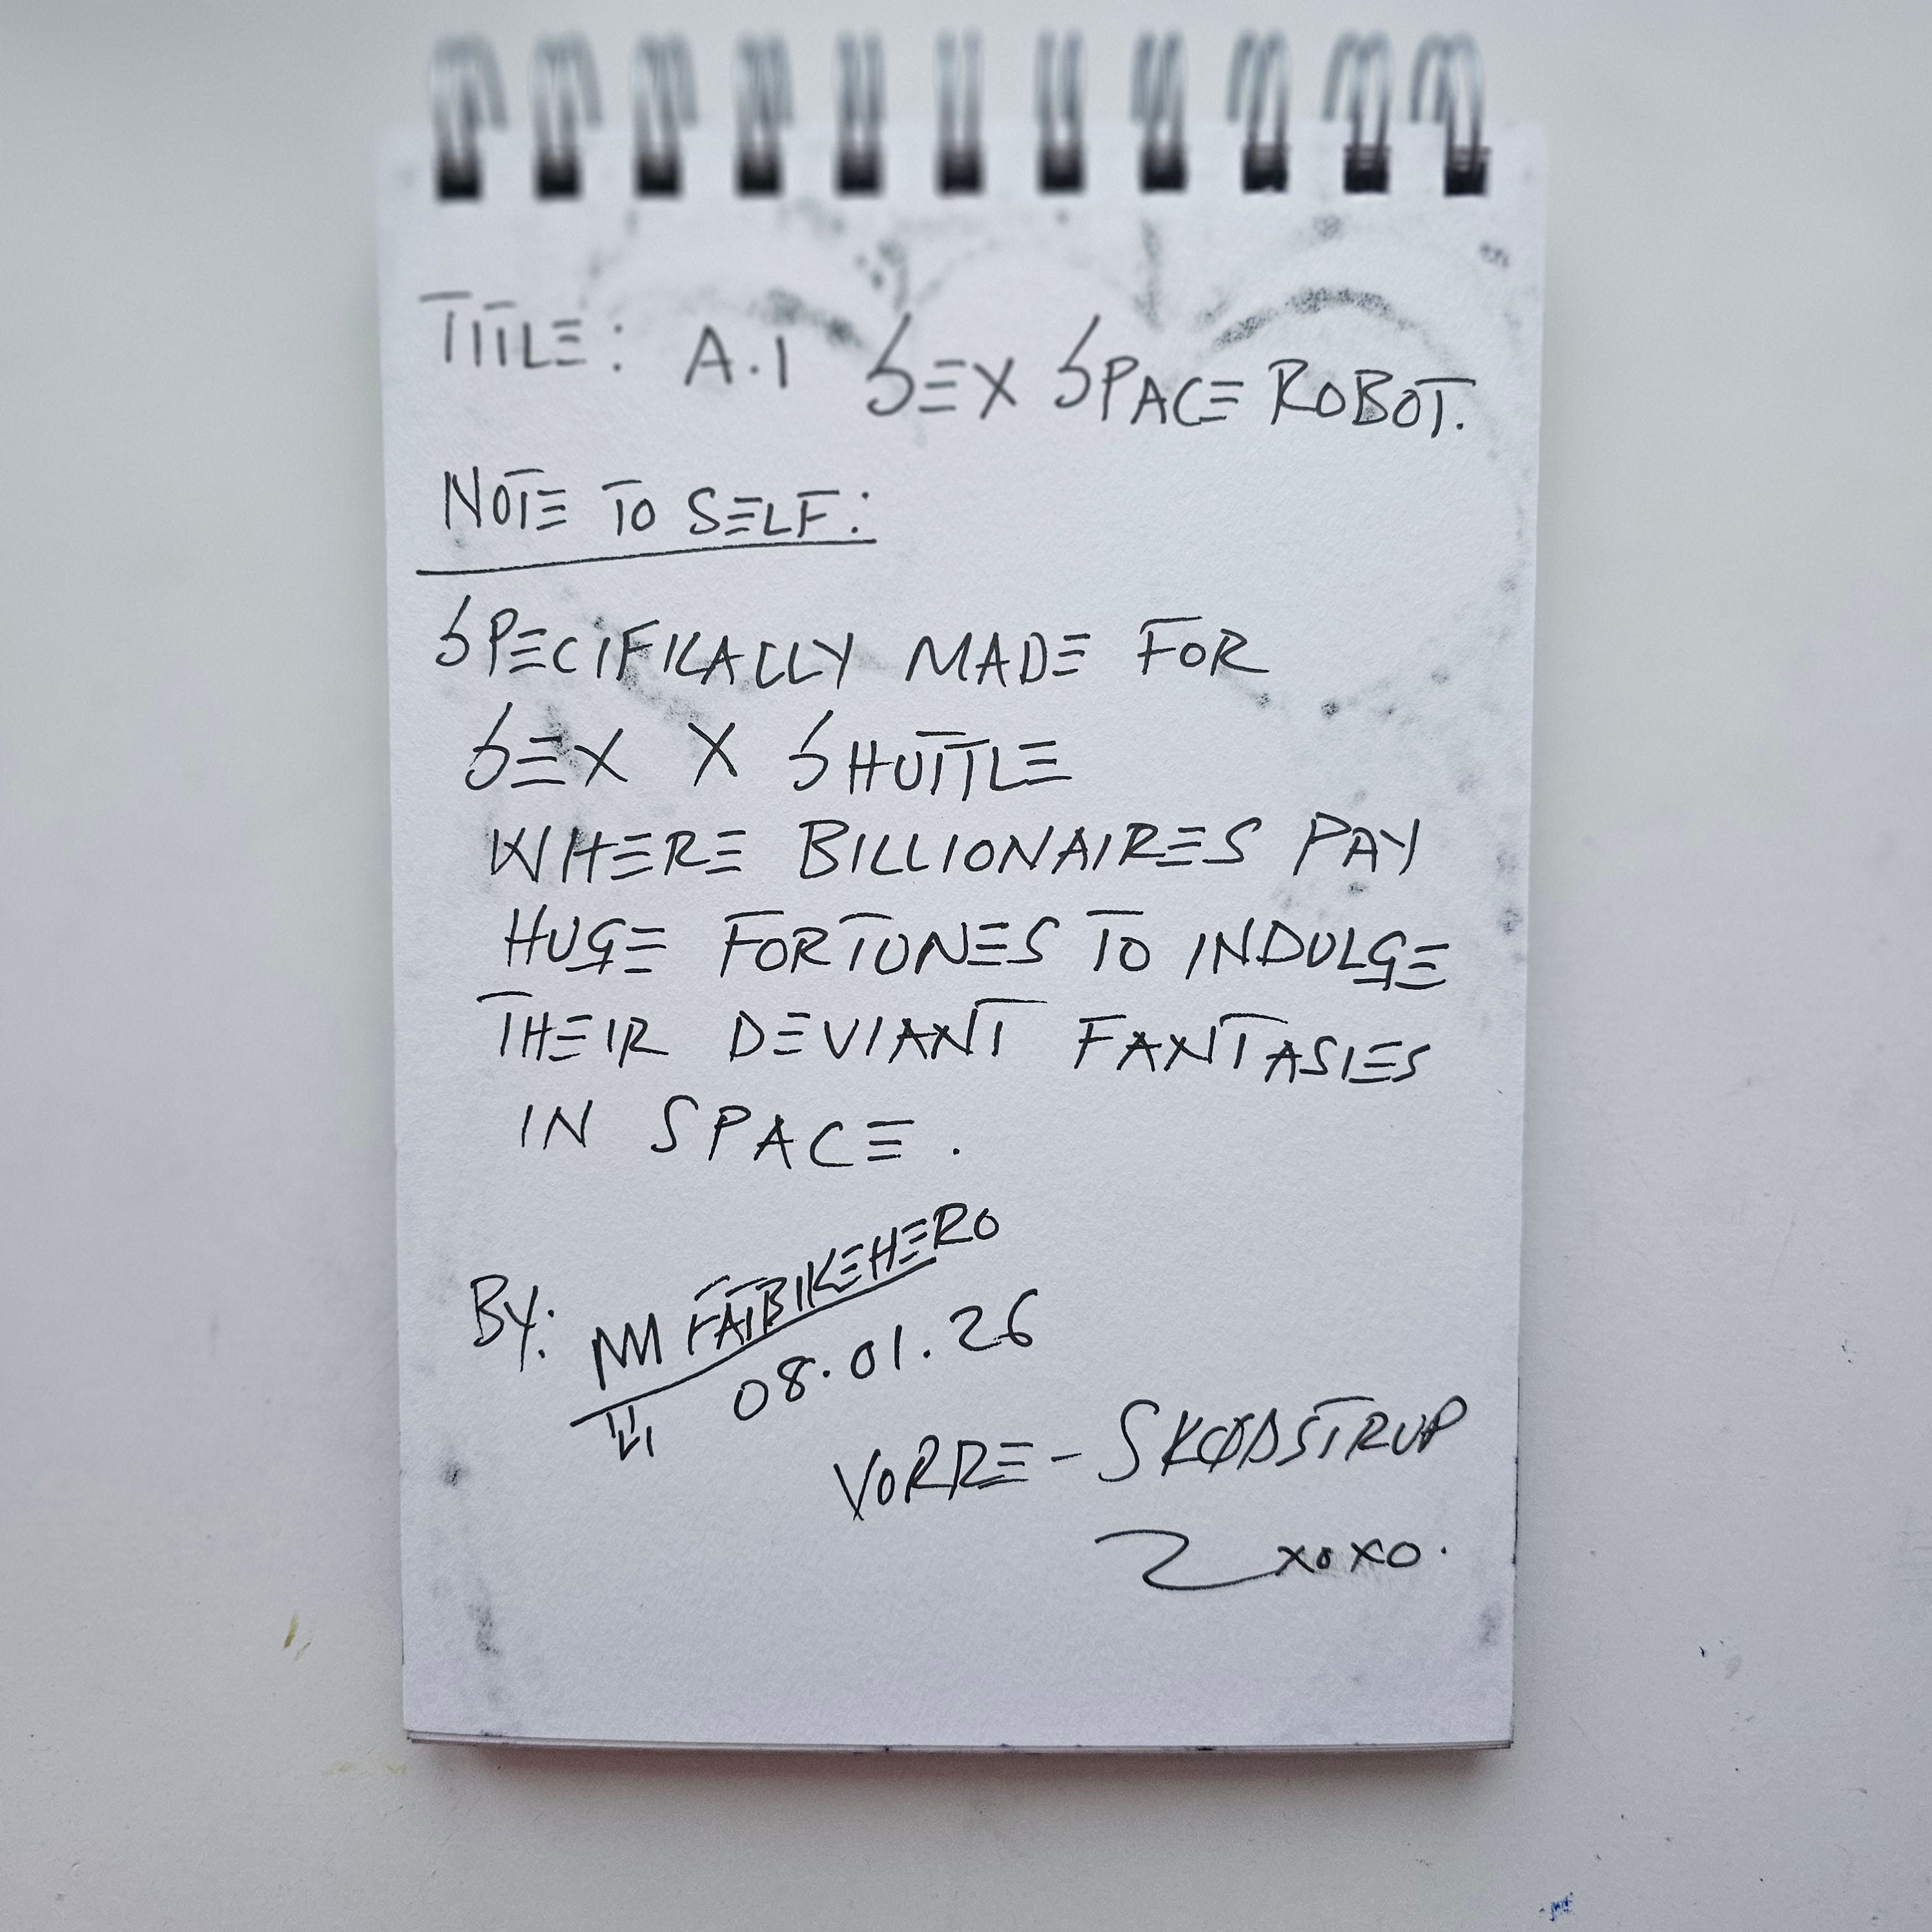 TITLE: A.I SEX SPACE ROBOT.
NOTE TO SELF:
SPECIFIKALLY MADE FOR
SEX X SHUTTLE
WHERE BILLIONAIRES PAY
HUGE FORTUNES TO INDULGE
THEIR DEVIANT FANTASIES
IN SPACE.
By: FATBIKEHERO
08.01.26
VORRE-SKØDSTRUP
xoxo.